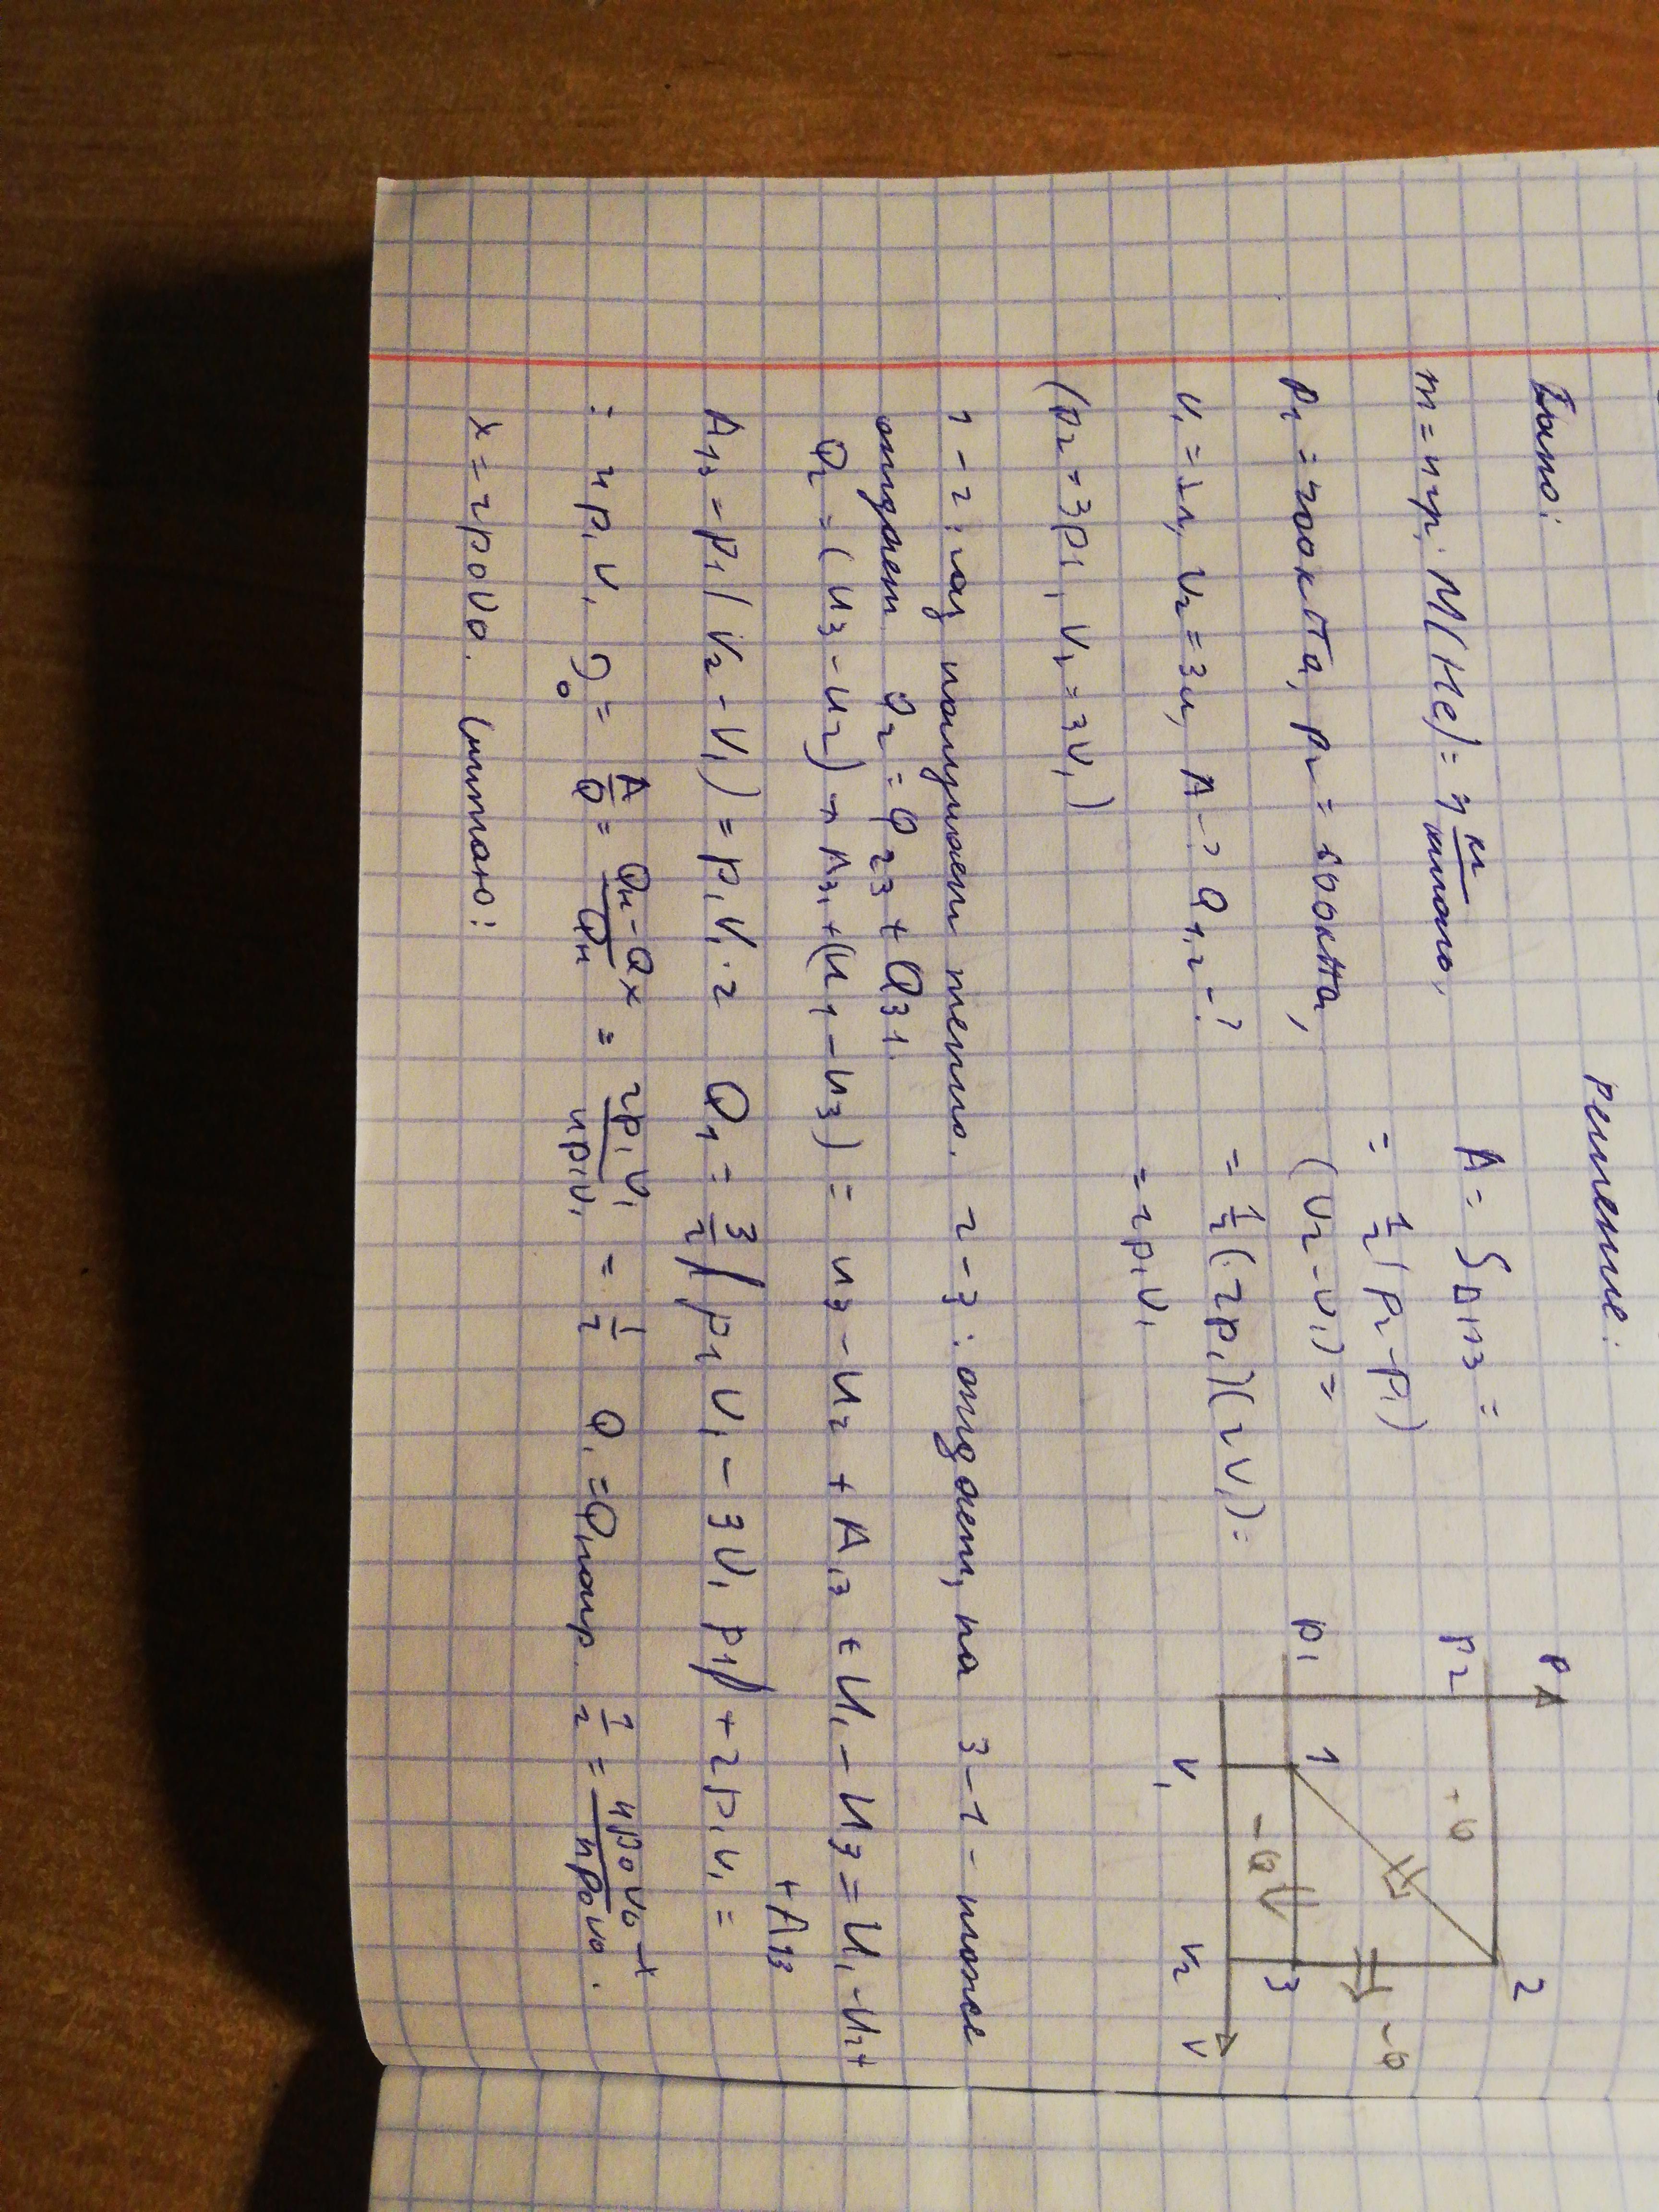 Дано:
m = 4 гр; M(He) = 4 г/моль,
p₁ = 200 кПа, p₂ = 600 кПа,
V₁ = 1 л, V₂ = 3 л, A - ? Q₁,₂ - ?
(p₂ = 3p₁, V₂ = 3V₁)
Решение:
A = S△123 =
= 1/2 (p₂ - p₁)
(V₂ - V₁) =
= 1/2 (2p₁)(2V₁) =
= 2p₁V₁
p
p₂
p₁
1
2
3
+Q
-Q
-Q
V₁
V₂
V
1 - 2: газ получает тепло. 2 - 3: отдает, на 3 - 1 - тоже
отдает Q₂ = Q₂₃ + Q₃₁.
Q₂ = (U₃ - U₂) + A₃₁ + (U₁ - U₃) = U₃ - U₂ + A₁₃ + U₁ - U₃ = U₁ - U₂ +
+ A₁₃
A₁₃ = p₁(V₂ - V₁) = p₁V₁·2 Q₁ = 3/2 |p₁V₁ - 3V₁p₁| + 2p₁V₁ =
= 4p₁V₁ = A/Q = = 2p₁V₁/4p₁V₁ = 1/2 1/2 = 4p₀V₀ - x/4p₀V₀.
x = 2p₀V₀. Считаю: